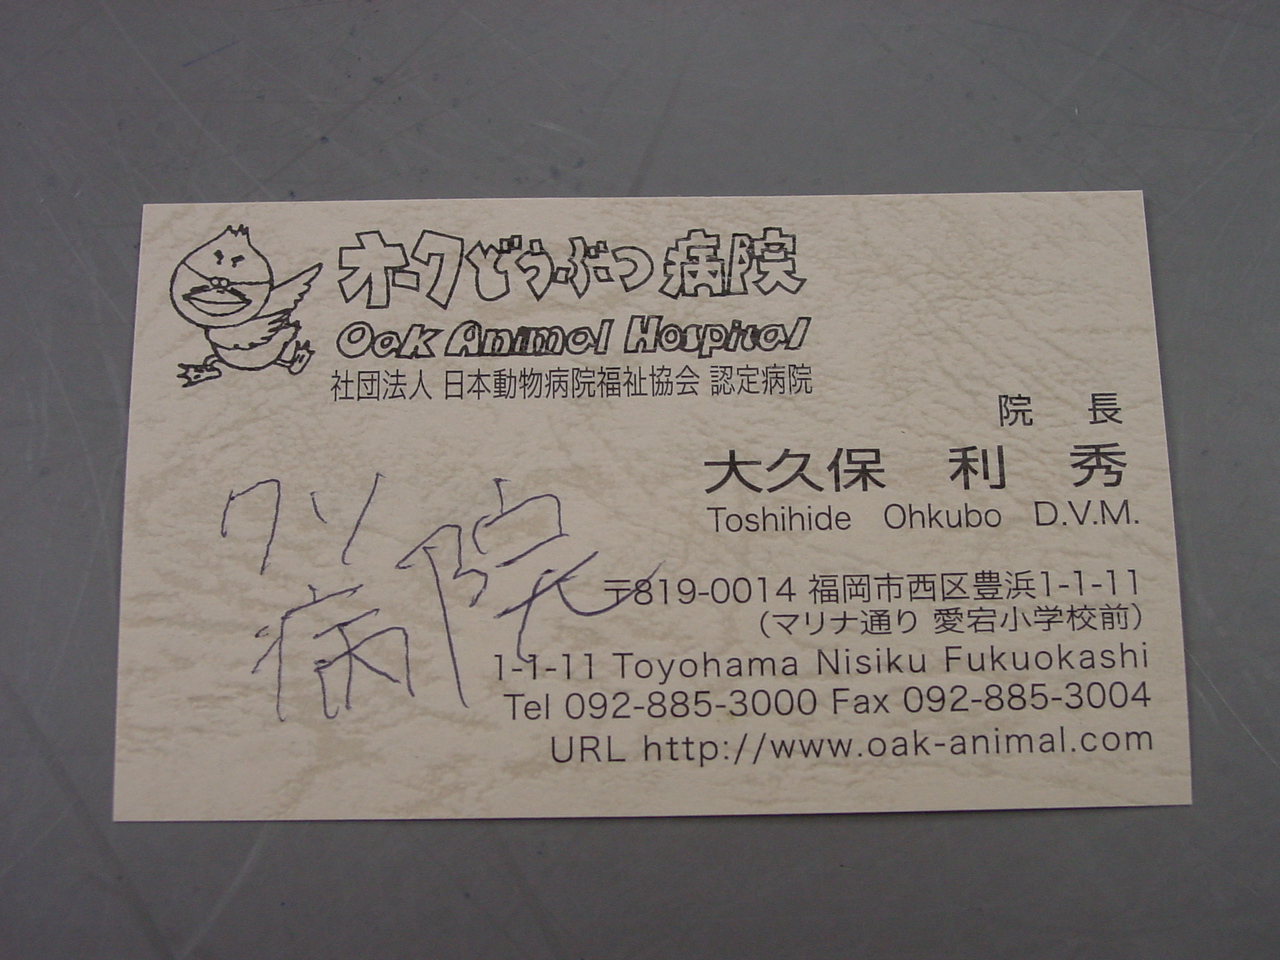 オークどうぶつ病院
Oak Animal Hospital
社団法人 日本動物病院福祉協会 認定病院
院 長
大久保 利 秀
Toshihide Ohkubo D.V.M.
クソ
病院
〒819-0014 福岡市西区豊浜1-1-11
（マリナ通り 愛宕小学校前）
1-1-11 Toyohama Nisiku Fukuokashi
Tel 092-885-3000 Fax 092-885-3004
URL http://www.oak-animal.com